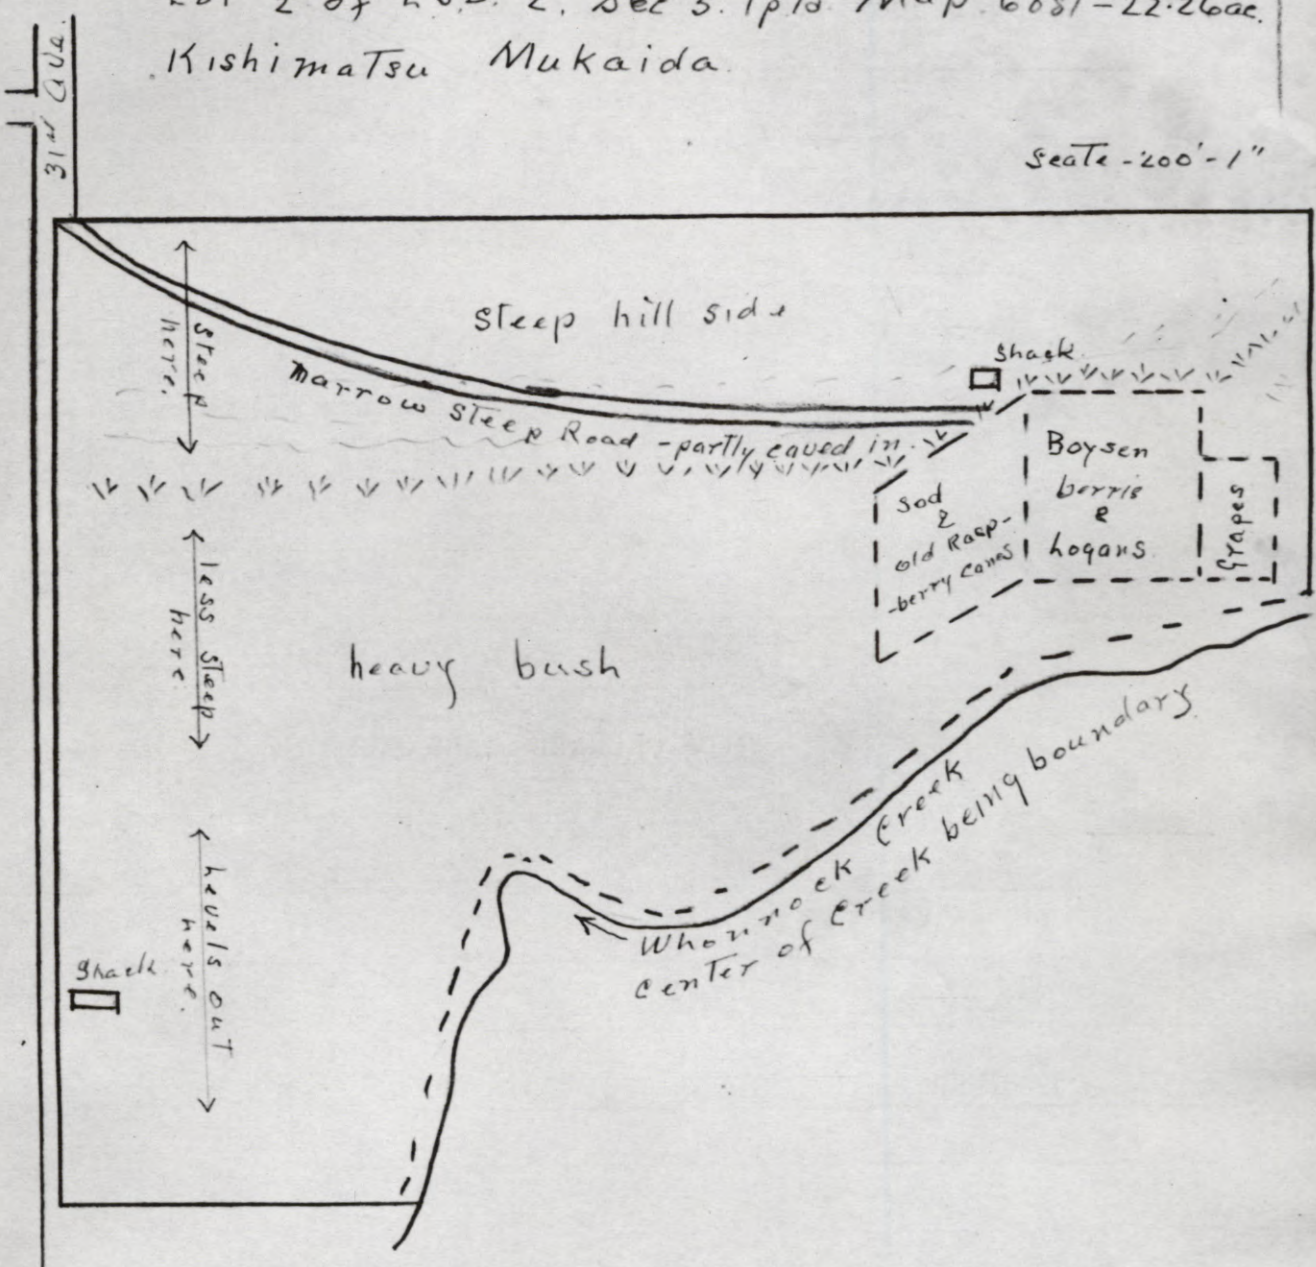 Lot 2 of L.S.D. 2. Sec 3. Tp 15 Map 6081 - 22.26ac.
Kishimatsu Mukaida
31st Ave.
Scale - 200' - 1"
steep hill side
steep
here.
Narrow Steep Road - partly caved in.
Shack
Boysen
berrie
&
Logans
Grapes
Sod
&
old Rasp-
-berry canes
less steep
here
heavy bush
Whonnock Creek
Center of Creek being boundary
Levels out
here.
Shack